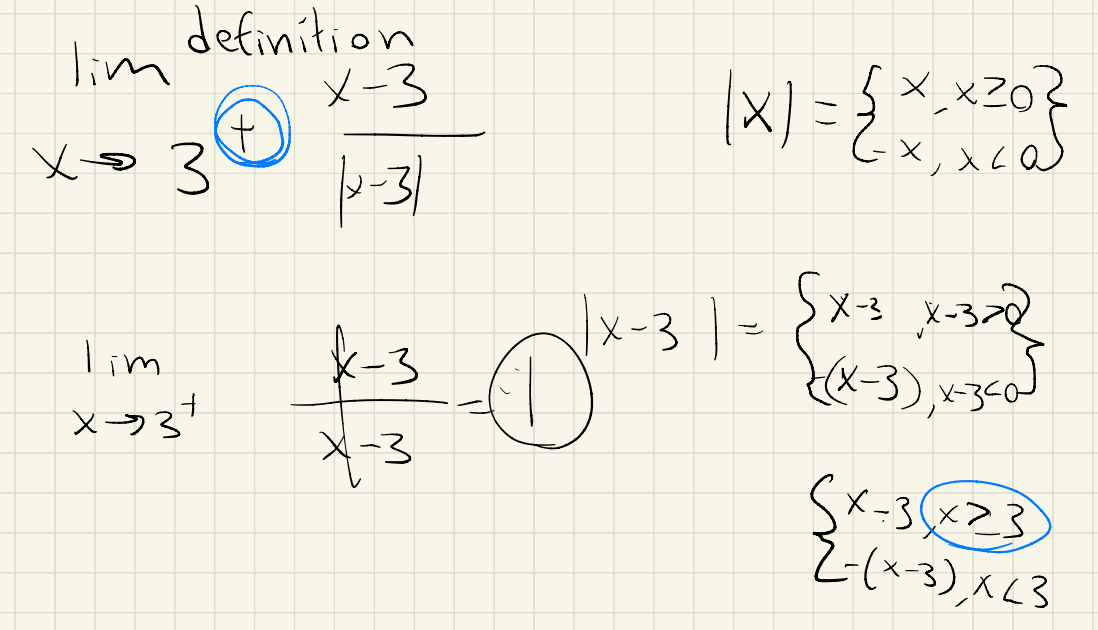 definition
lim x→3⁺ (x-3)/|x-3|
|x| = { x, x≥0
-x, x<0 }
lim x→3⁺ (x-3)/(x-3) = 1
|x-3| = { x-3, x-3>0
-(x-3), x-3<0 }
{ x-3, x≥3
-(x-3), x<3